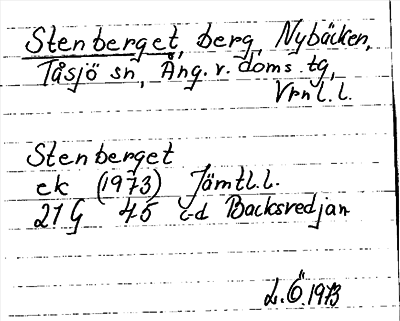 Stenberget, berg, Nybäcken,
Tåsjö sn, Ång. v. doms. tg,
Vrnl.l.
Stenberget
ek (1973) Jämtl.l.
21G 45 c-d Backsvedjan
L.Ö.1973